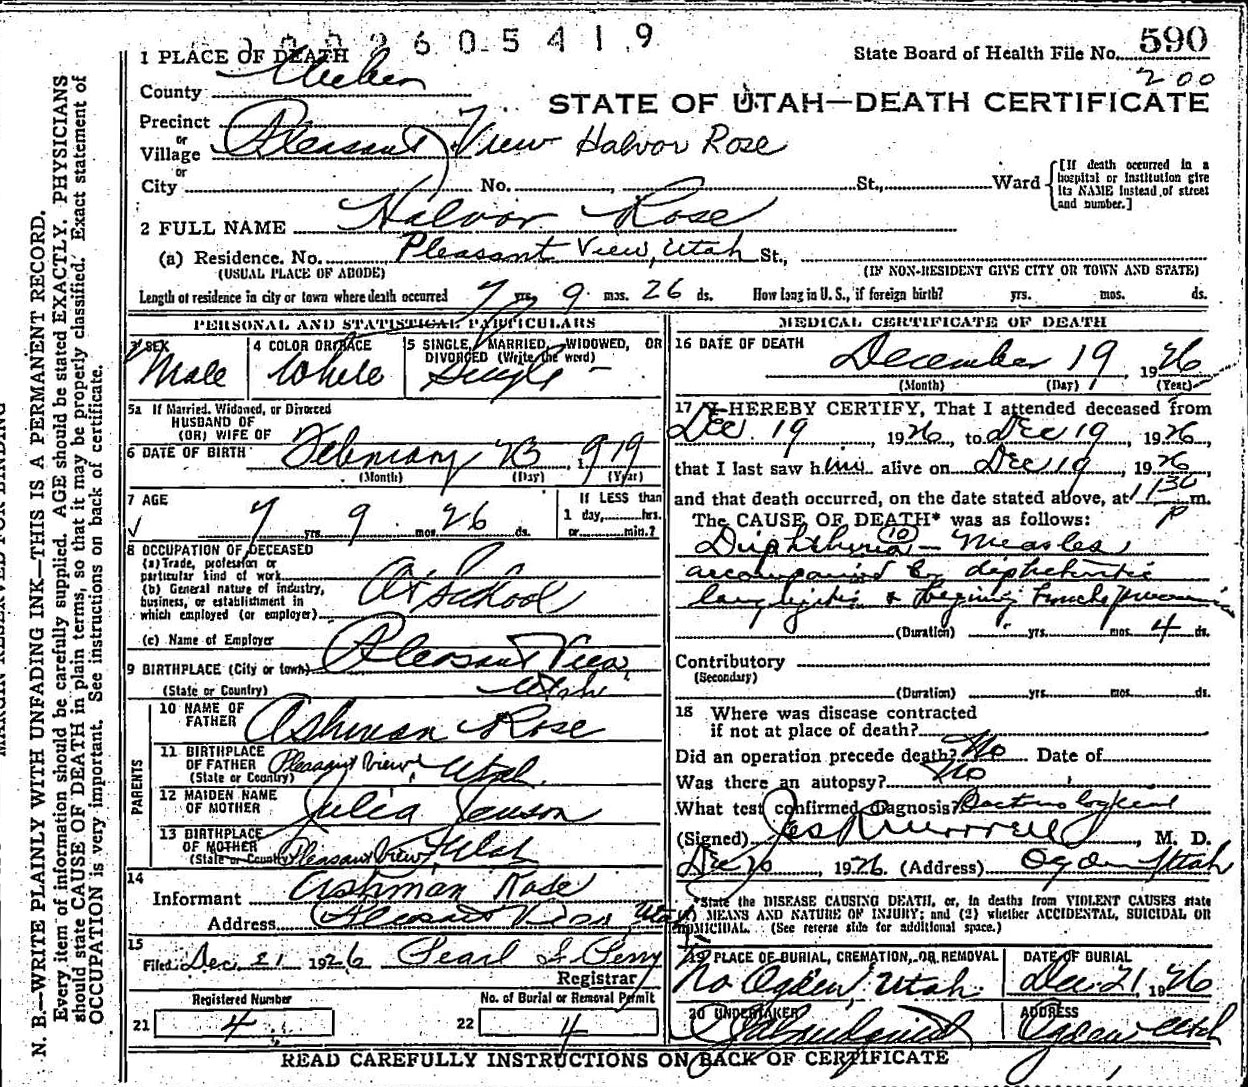 2 6 0 5 4 1 9
State Board of Health File No. 590
200
1 PLACE OF DEATH
County Weber
STATE OF UTAH—DEATH CERTIFICATE
Precinct
or
Village Pleasant View Halvor Rose
or
City No. St., Ward
[If death occurred in a hospital or institution give its NAME instead of street and number.]
2 FULL NAME Halvor Rose
(a) Residence. No. Pleasant View, Utah St.,
(USUAL PLACE OF ABODE) (IF NON-RESIDENT GIVE CITY OR TOWN AND STATE)
Length of residence in city or town where death occurred 7 yrs. 9 mos. 26 ds. How long in U. S., if foreign birth? yrs. mos. ds.
PERSONAL AND STATISTICAL PARTICULARS
3 SEX Male
4 COLOR OR RACE White
5 SINGLE, MARRIED, WIDOWED, OR DIVORCED (Write the word) Single
5a If Married, Widowed, or Divorced
HUSBAND OF
(OR) WIFE OF
6 DATE OF BIRTH February 23 1919
(Month) (Day) (Year)
7 AGE 7 yrs. 9 mos. 26 ds.
If LESS than 1 day, hrs. or min.?
8 OCCUPATION OF DECEASED
(a) Trade, profession or particular kind of work
(b) General nature of industry, business, or establishment in which employed (or employer) At school
(c) Name of Employer
9 BIRTHPLACE (City or town) Pleasant View,
(State or Country) Utah
PARENTS
10 NAME OF FATHER Ashman Rose
11 BIRTHPLACE OF FATHER (State or Country) Pleasant View, Utah.
12 MAIDEN NAME OF MOTHER Julia
13 BIRTHPLACE OF MOTHER (State or Country) Pleasant View, Utah
14 Informant Ashman Rose
Address Pleasant View, Utah
15 Filed Dec 21 1926 Pearl Perry
Registrar
Registered Number
21 4
No. of Burial or Removal Permit
22 4
MEDICAL CERTIFICATE OF DEATH
16 DATE OF DEATH December 19, 1926
(Month) (Day) (Year)
17 I HEREBY CERTIFY, That I attended deceased from
Dec. 19, 1926, to Dec 19, 1926,
that I last saw him alive on Dec 19, 1926
and that death occurred, on the date stated above, at 1130 P m.
The CAUSE OF DEATH* was as follows:
10
Diphtheria — Measles
accompanied by diphtheritic
laryngitis &
(Duration) yrs. mos. 4 ds.
Contributory
(Secondary)
(Duration) yrs. mos. ds.
18 Where was disease contracted
if not at place of death?
Did an operation precede death? No Date of
Was there an autopsy? No
What test confirmed diagnosis Bacteriological
(Signed) M. D.
Dec 20, 1926. (Address) Ogden Utah
*State the DISEASE CAUSING DEATH, or, in deaths from VIOLENT CAUSES state
MEANS AND NATURE OF INJURY; and (2) whether ACCIDENTAL, SUICIDAL OR
HOMICIDAL. (See reverse side for additional space.)
19 PLACE OF BURIAL, CREMATION, OR REMOVAL
No Ogden, Utah.
DATE OF BURIAL
Dec. 21 1926
20 UNDERTAKER
ADDRESS
Ogden Utah
READ CAREFULLY INSTRUCTIONS ON BACK OF CERTIFICATE
MARGIN RESERVED FOR BINDING
N. B—WRITE PLAINLY WITH UNFADING INK—THIS IS A PERMANENT RECORD.
Every item of information should be carefully supplied. AGE should be stated EXACTLY. PHYSICIANS
should state CAUSE OF DEATH in plain terms, so that it may be properly classified. Exact statement of
OCCUPATION is very important. See instructions on back of certificate.